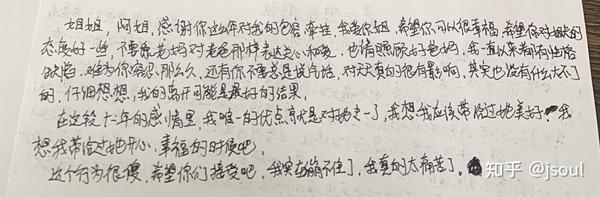 姐姐，阿姐，感谢你这么多年对我的包容，牵挂，我爱你姐，希望你可以很幸福，希望你对姐夫的
态度好一些，不要像老妈对老爸那样表达关心和爱，也请照顾好爸妈，我一直以来都有性格
缺陷，难为你容忍那么久，还有你不要总是说气话，对天天真的很有影响，其实也没有什么大不了
的，仔细想想，我的离开可能是最好的结果。
在这段十一年的感情里，我唯一的优点就是对她专一了，我想我应该带给过她美好，我
想我带给过她开心、幸福的时候吧
这个行为很傻，希望你们接受吧，我实在崩不住了，我真的太痛苦了。
知乎 @jsoul